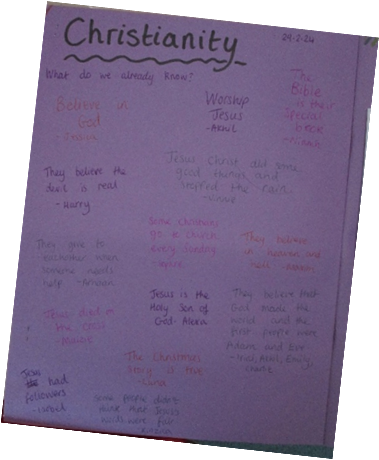 Christianity
29.2.24
What do we already know?
The
Bible
is their
special
book
Believe in
God
Worship
Jesus
Jesus Christ did some
good things and
stopped the rain
They believe the
devil is real
- Harry
Some Christians
go to church
every Sunday
They believe
in heaven and
hell
They give to
when
someone needs
help
Jesus is the
Holy Son of
God
They believe that
God made the
world and the
first people were
Adam and Eve
Jesus died on
the cross
The Christmas
story is true
Jesus
had
followers
Some people didn't
think that Jesus